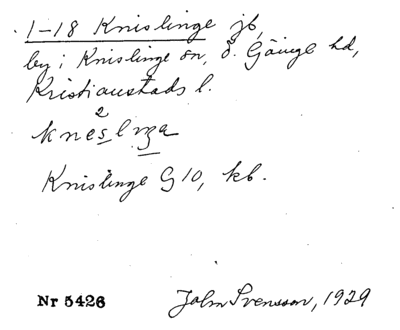 1-18 Knislinge jb,
by i Knislinge sn, Ö. Göinge hd,
Kristianstads l.
2
Knislinge G 10, kb.
Nr 5426 John Svensson, 1929